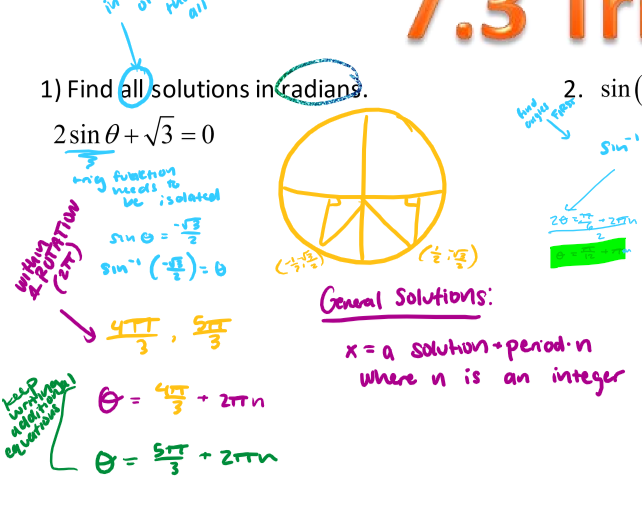 in
all
7.3 Tri
1) Find all solutions in radians.
2 sin θ + √3 = 0
trig function
needs to
be isolated
sin θ = -√3/2
sin⁻¹ (-√3/2) = θ
within
1 ROTATION
(2π)
4π/3 , 5π/3
θ = 4π/3 + 2πn
θ = 5π/3 + 2πn
keep
writing
additional
equations
(-1/2, -√3/2)
(1/2, -√3/2)
General Solutions:
x = a solution + period · n
where n is an integer
2. sin(
find
angles
FIRST
sin⁻¹
2θ = π/6 + 2πn
2
θ = π/12 + πn